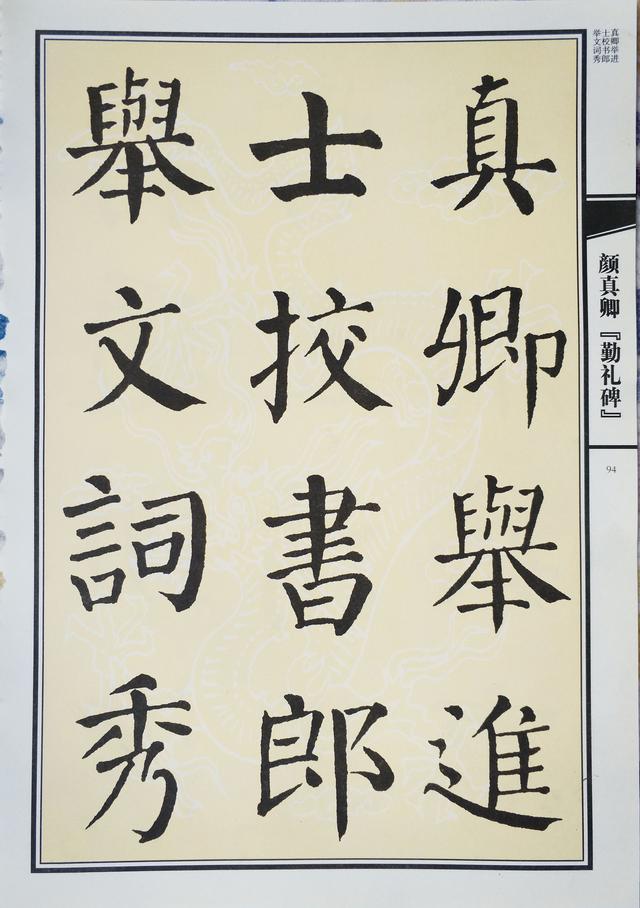 真卿舉進
士挍書郎
舉文詞秀
真卿举进
士校书郎
举文词秀
颜真卿『勤礼碑』
94